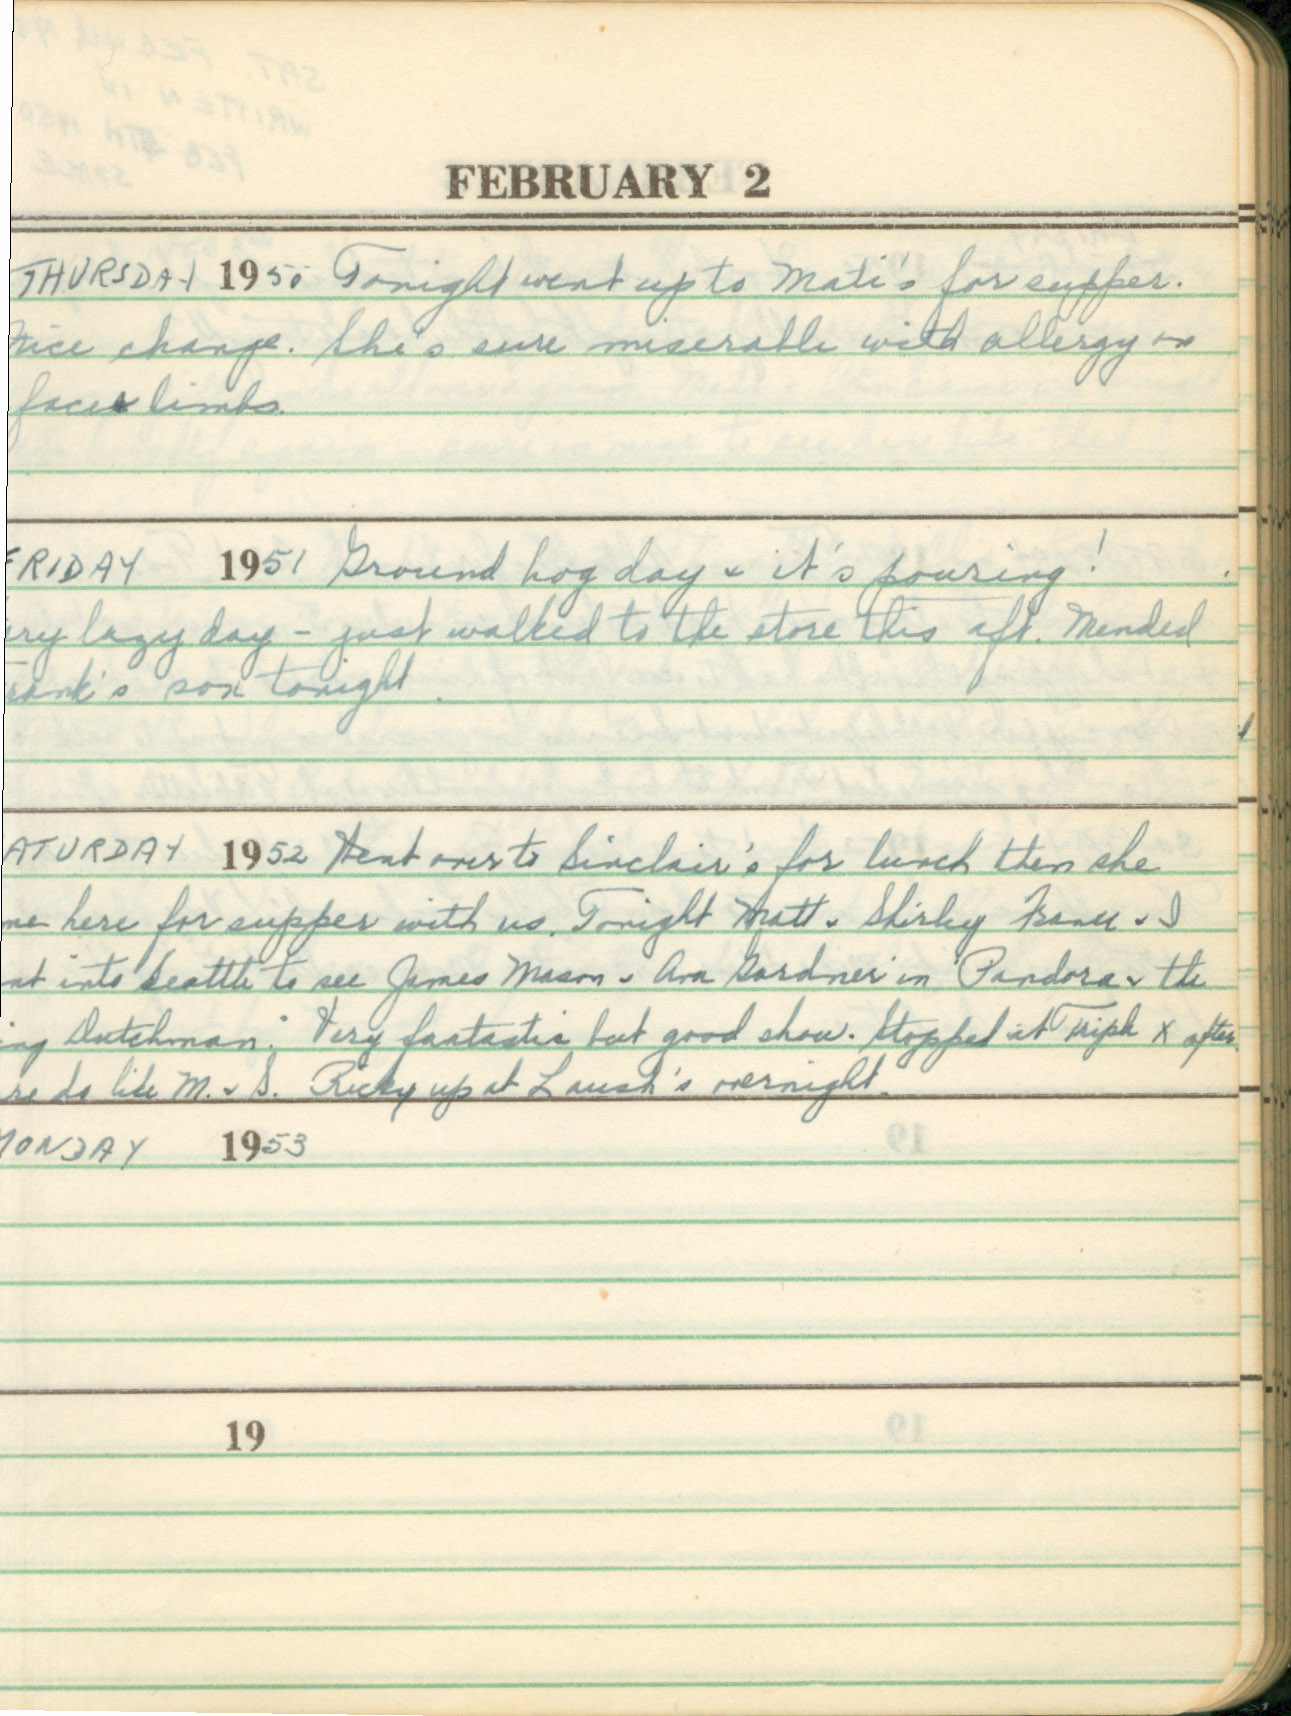 FEBRUARY 2
THURSDAY 1950 Tonight went up to Mati's for supper.
Nice change. She's sure miserable with allergy on
face & limbs.
FRIDAY 1951 Ground hog day & it's pouring!
ery lazy day - just walked to the store this aft. Mended
rank's sox tonight.
ATURDAY 1952 Went over to Sinclair's for lunch then she
me here for supper with us. Tonight Matt & Shirley & I
nt into Seattle to see James Mason & Ava Gardner in "Pandora & the
ing Dutchman." Very fantastic but good show. Stopped at Triple X after.
re do like M. & S. Ricky up at overnight.
MONDAY 1953
19